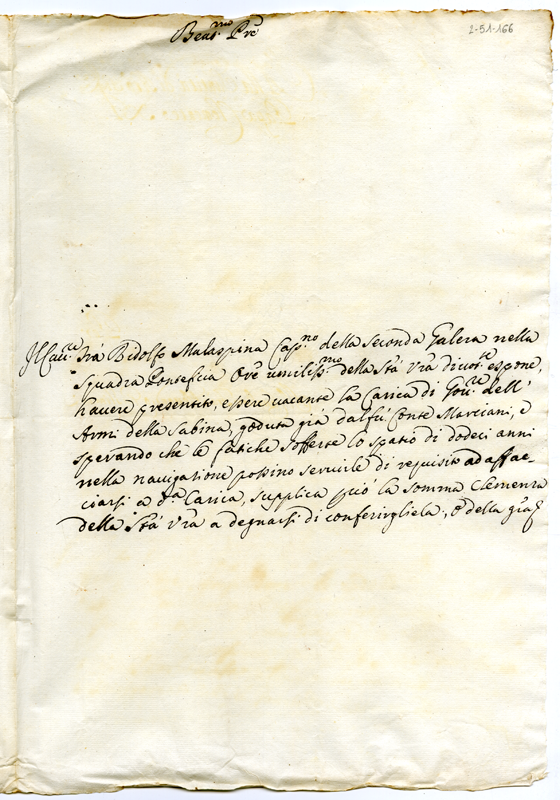 Beat.mo Pre
2-51-166
Il Cau.re Frà Ridolfo Malaspina Cap.no della Seconda Galera nella
Squadra Pontificia Ore umiliss.mo della Stà Vra diuot.te espone,
hauere presentito, essere uacante la Carica di Gou.re dell'
Armi della Sabina, goduta già dal fù Conte Marciani, e
sperando che le fatiche sofferte lo spatio di dodeci anni
nella nauigatione possino seruirle di requisito ad affac-
ciarsi a d.a Carica, supplica però la somma Clemenza
della Stà Vra a degnarsi di conferirgliela, e della gra